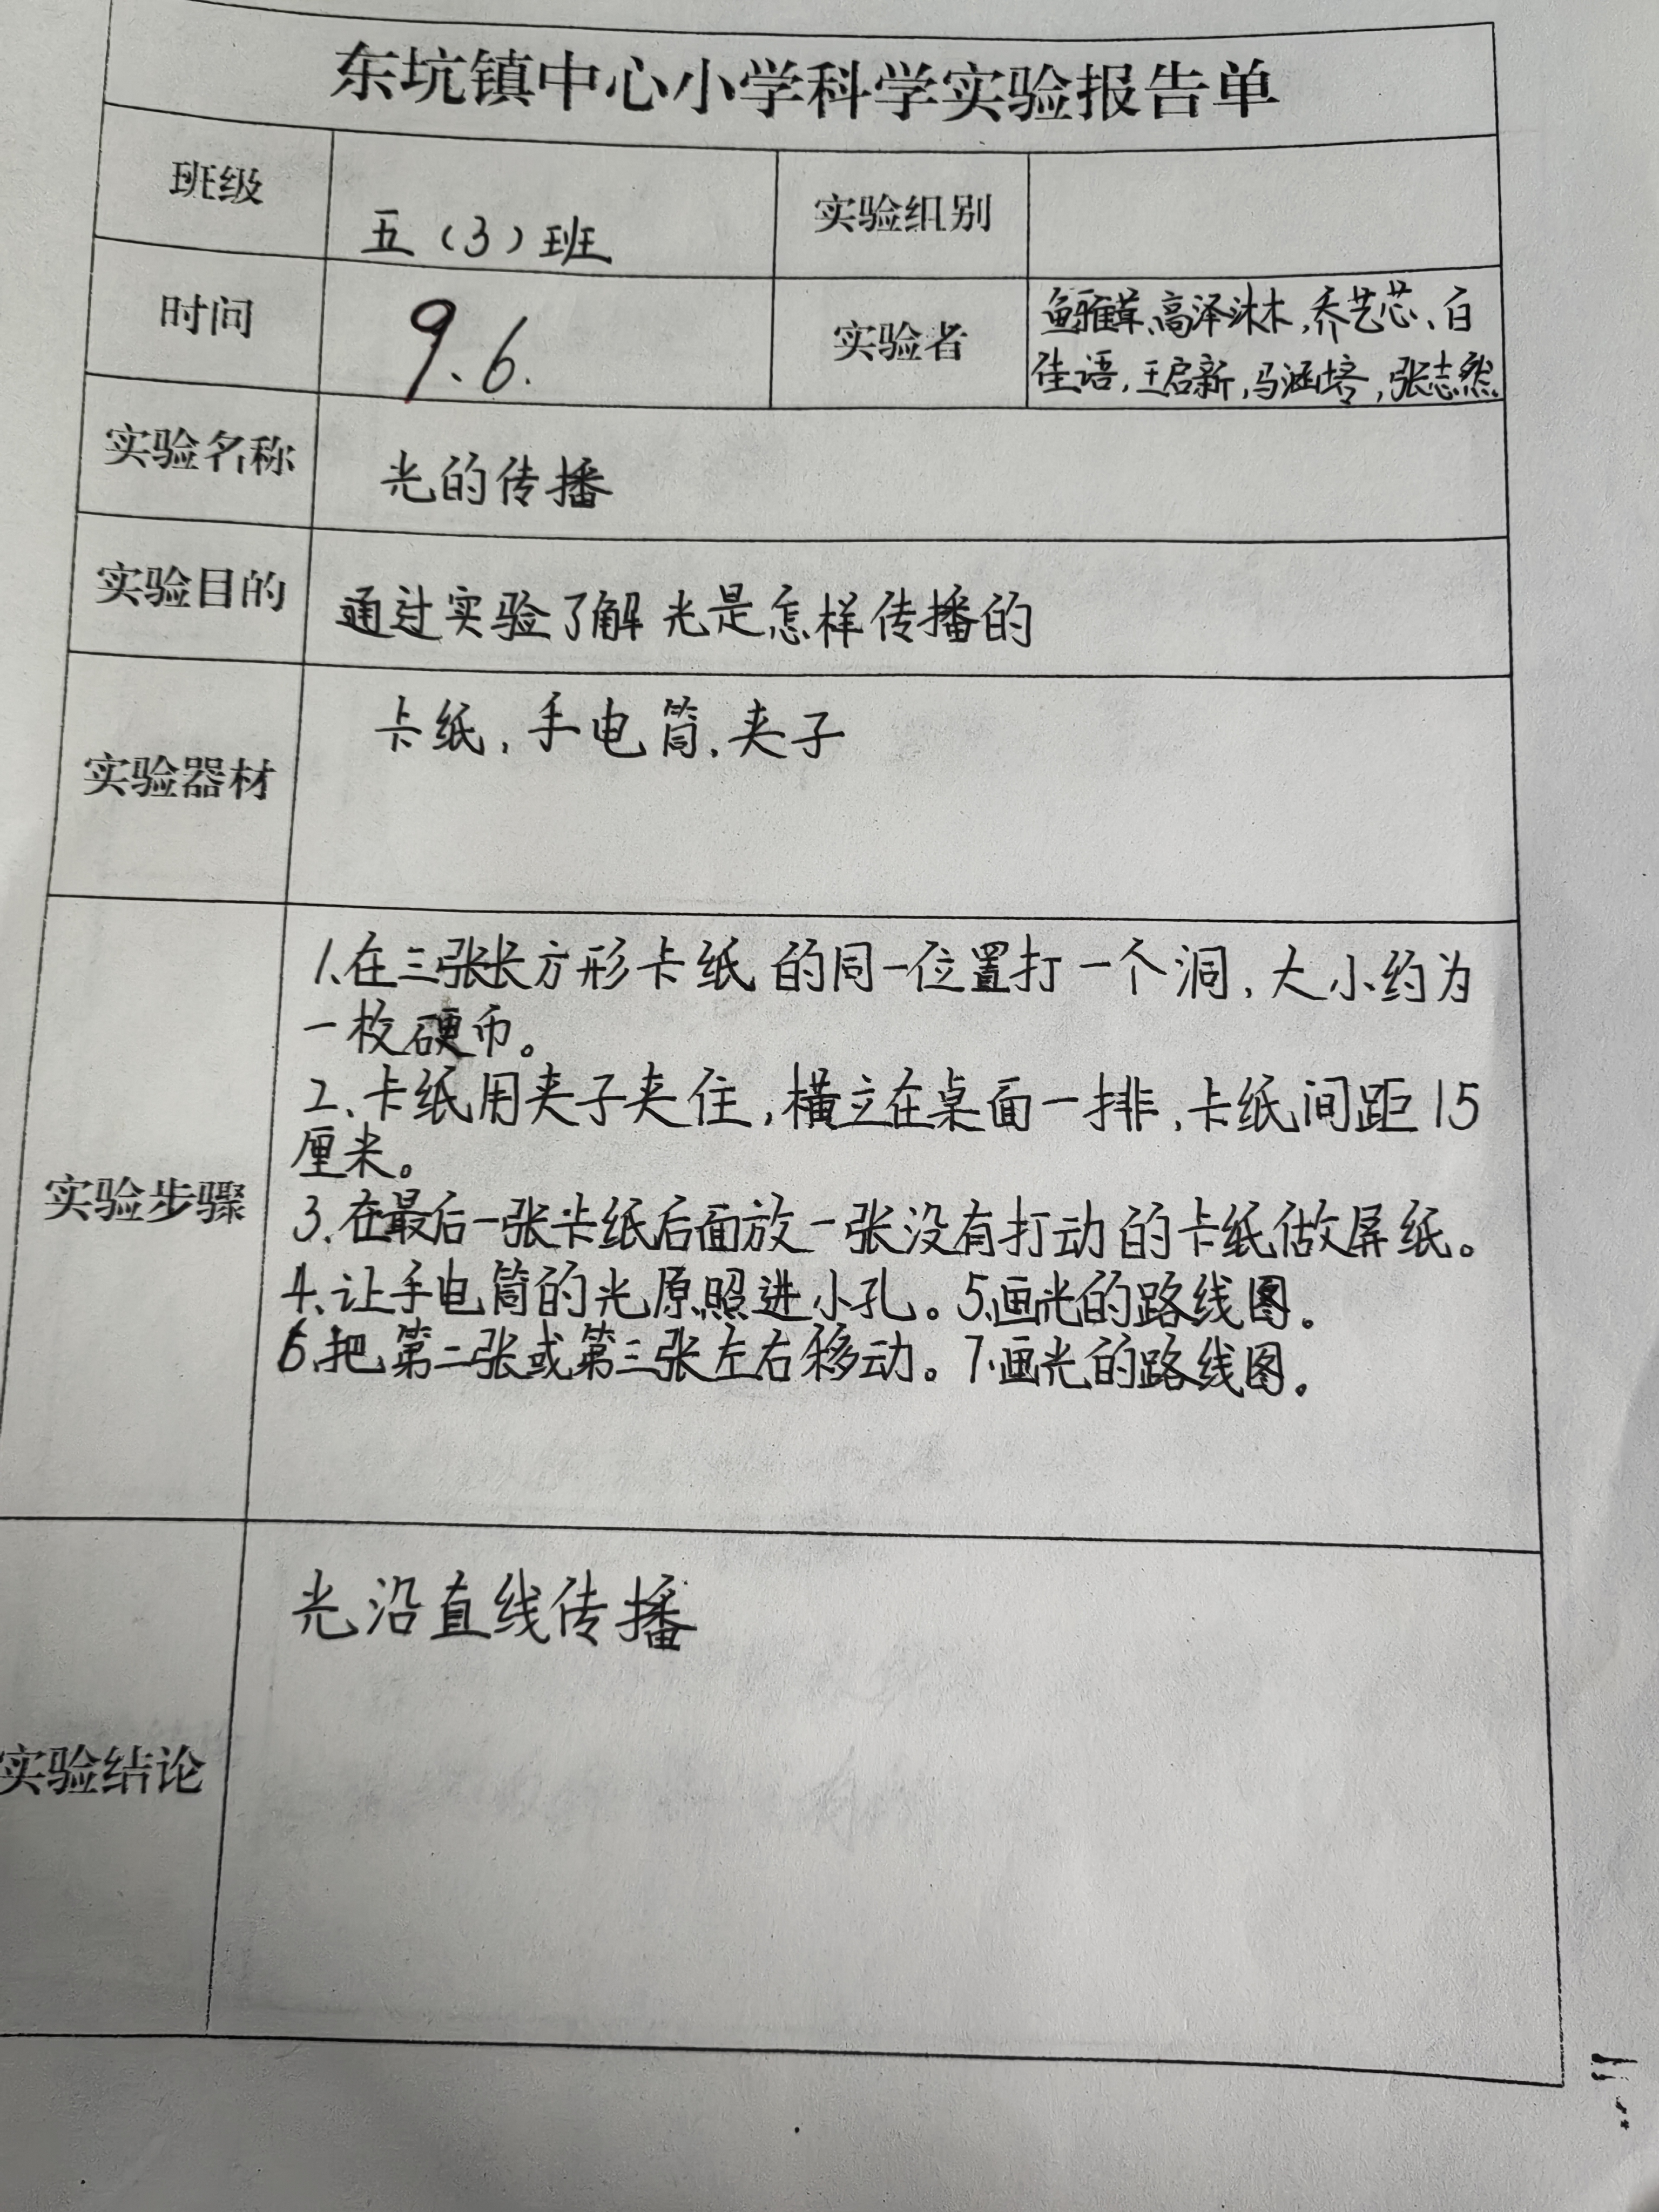 东坑镇中心小学科学实验报告单
班级
五（3）班
实验组别
时间
9.6.
实验者
高泽沐木,乔艺芯、白
佳语,王启新,马涵培,张志然
实验名称
光的传播
实验目的
通过实验了解光是怎样传播的
实验器材
卡纸,手电筒,夹子
实验步骤
1、在三张长方形卡纸的同一位置打一个洞,大小约为
一枚硬币。
2、卡纸用夹子夹住,横立在桌面一排,卡纸间距15
厘米。
3、在最后一张卡纸后面放一张没有打动的卡纸做屏纸。
4、让手电筒的光原照进小孔。5、画光的路线图。
6、把第二张或第三张左右移动。7、画光的路线图。
实验结论
光沿直线传播